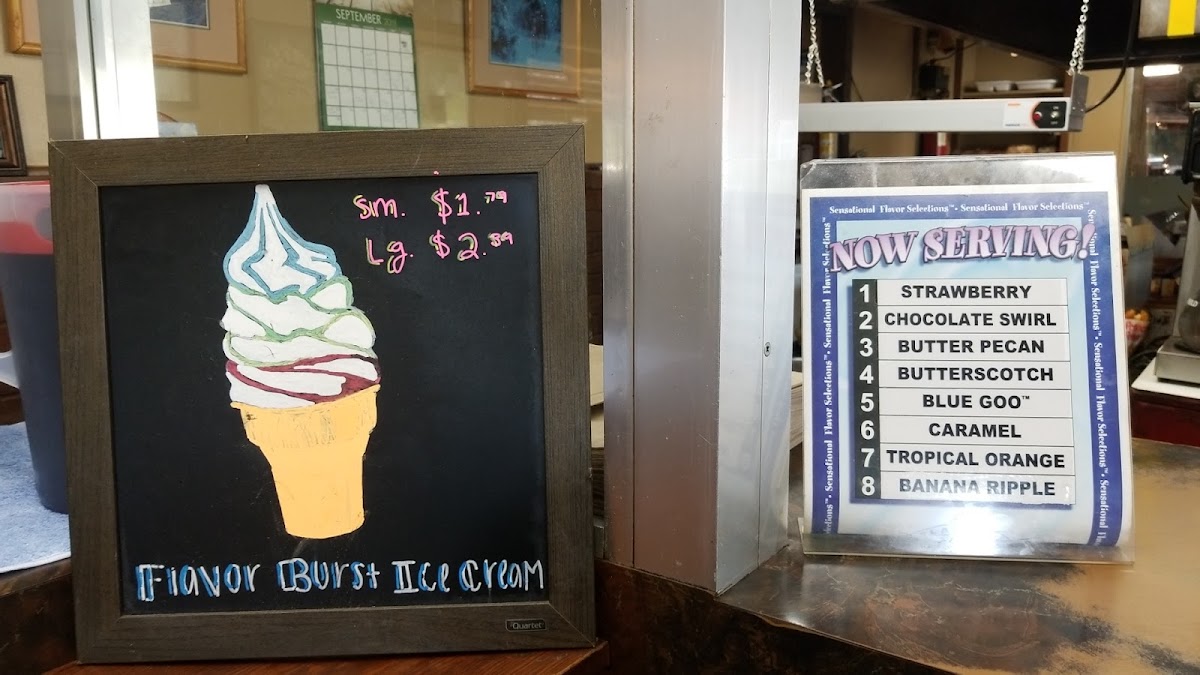 SEPTEMBER
Sm. $1.79
Lg. $2.89
Flavor Burst Ice Cream
Quartet
Sensational Flavor Selections™ • Sensational Flavor Selections™
NOW SERVING!
1 STRAWBERRY
2 CHOCOLATE SWIRL
3 BUTTER PECAN
4 BUTTERSCOTCH
5 BLUE GOO™
6 CARAMEL
7 TROPICAL ORANGE
8 BANANA RIPPLE